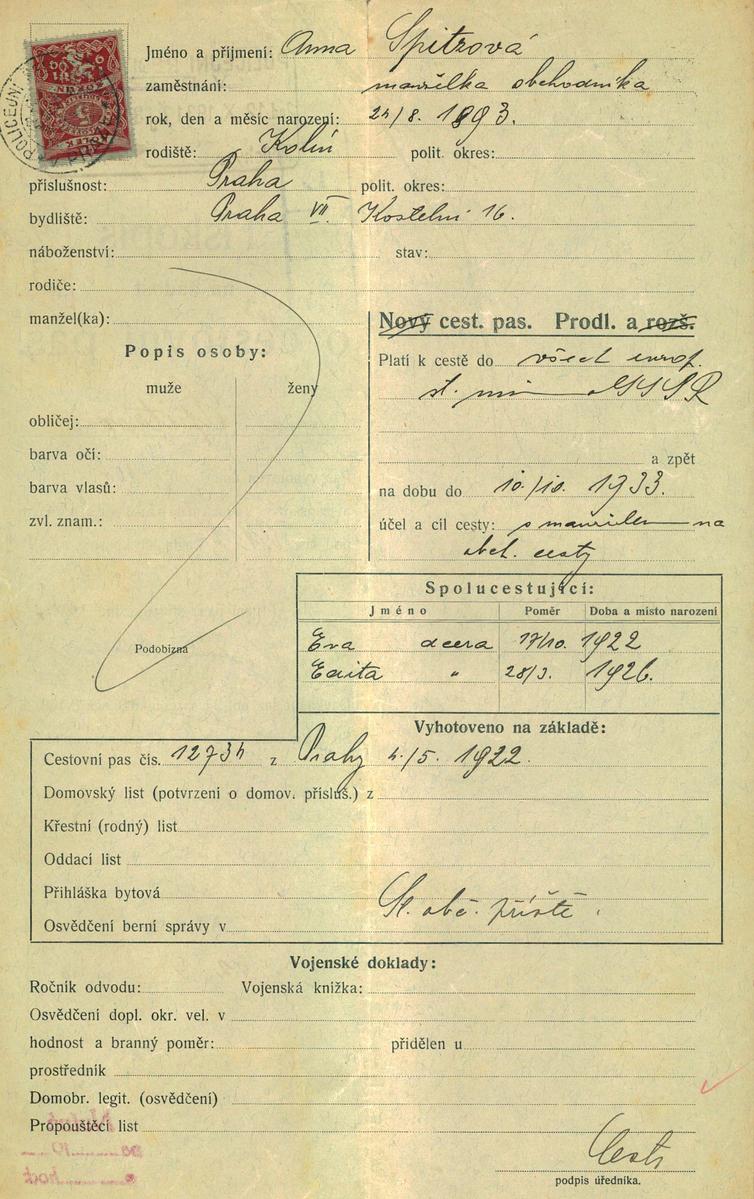 Jméno a příjmení: Anna Spitzová
zaměstnání: manželka obchodníka
rok, den a měsíc narození: 24/8. 1893.
rodiště: Kolín polit. okres:
příslušnost: Praha polit. okres:
bydliště: Praha VII. Kostelní 16.
náboženství: stav:
rodiče:
manžel(ka):
Popis osoby:
muže ženy
obličej:
barva očí:
barva vlasů:
zvl. znam.:
Podobizna
Nový cest. pas. Prodl. a rozš.
Platí k cestě do všech europ.
st. mimo SSSR
a zpět
na dobu do 10./10. 1933.
účel a cíl cesty: s manželem na
obch. cesty
Spolucestující:
Jméno Poměr Doba a místo narození
Eva dcera 17/10. 1922
Edita " 28/3. 1926.
Vyhotoveno na základě:
Cestovní pas čís. 12734 z Prahy 4./5. 1922.
Domovský list (potvrzení o domov. přísluš.) z
Křestní (rodný) list
Oddací list
Přihláška bytová
St. obč. příště.
Osvědčení berní správy v
Vojenské doklady:
Ročník odvodu: Vojenská knížka:
Osvědčení dopl. okr. vel. v
hodnost a branný poměr: přidělen u
prostředník
Domobr. legit. (osvědčení)
Propouštěcí list
podpis úředníka.